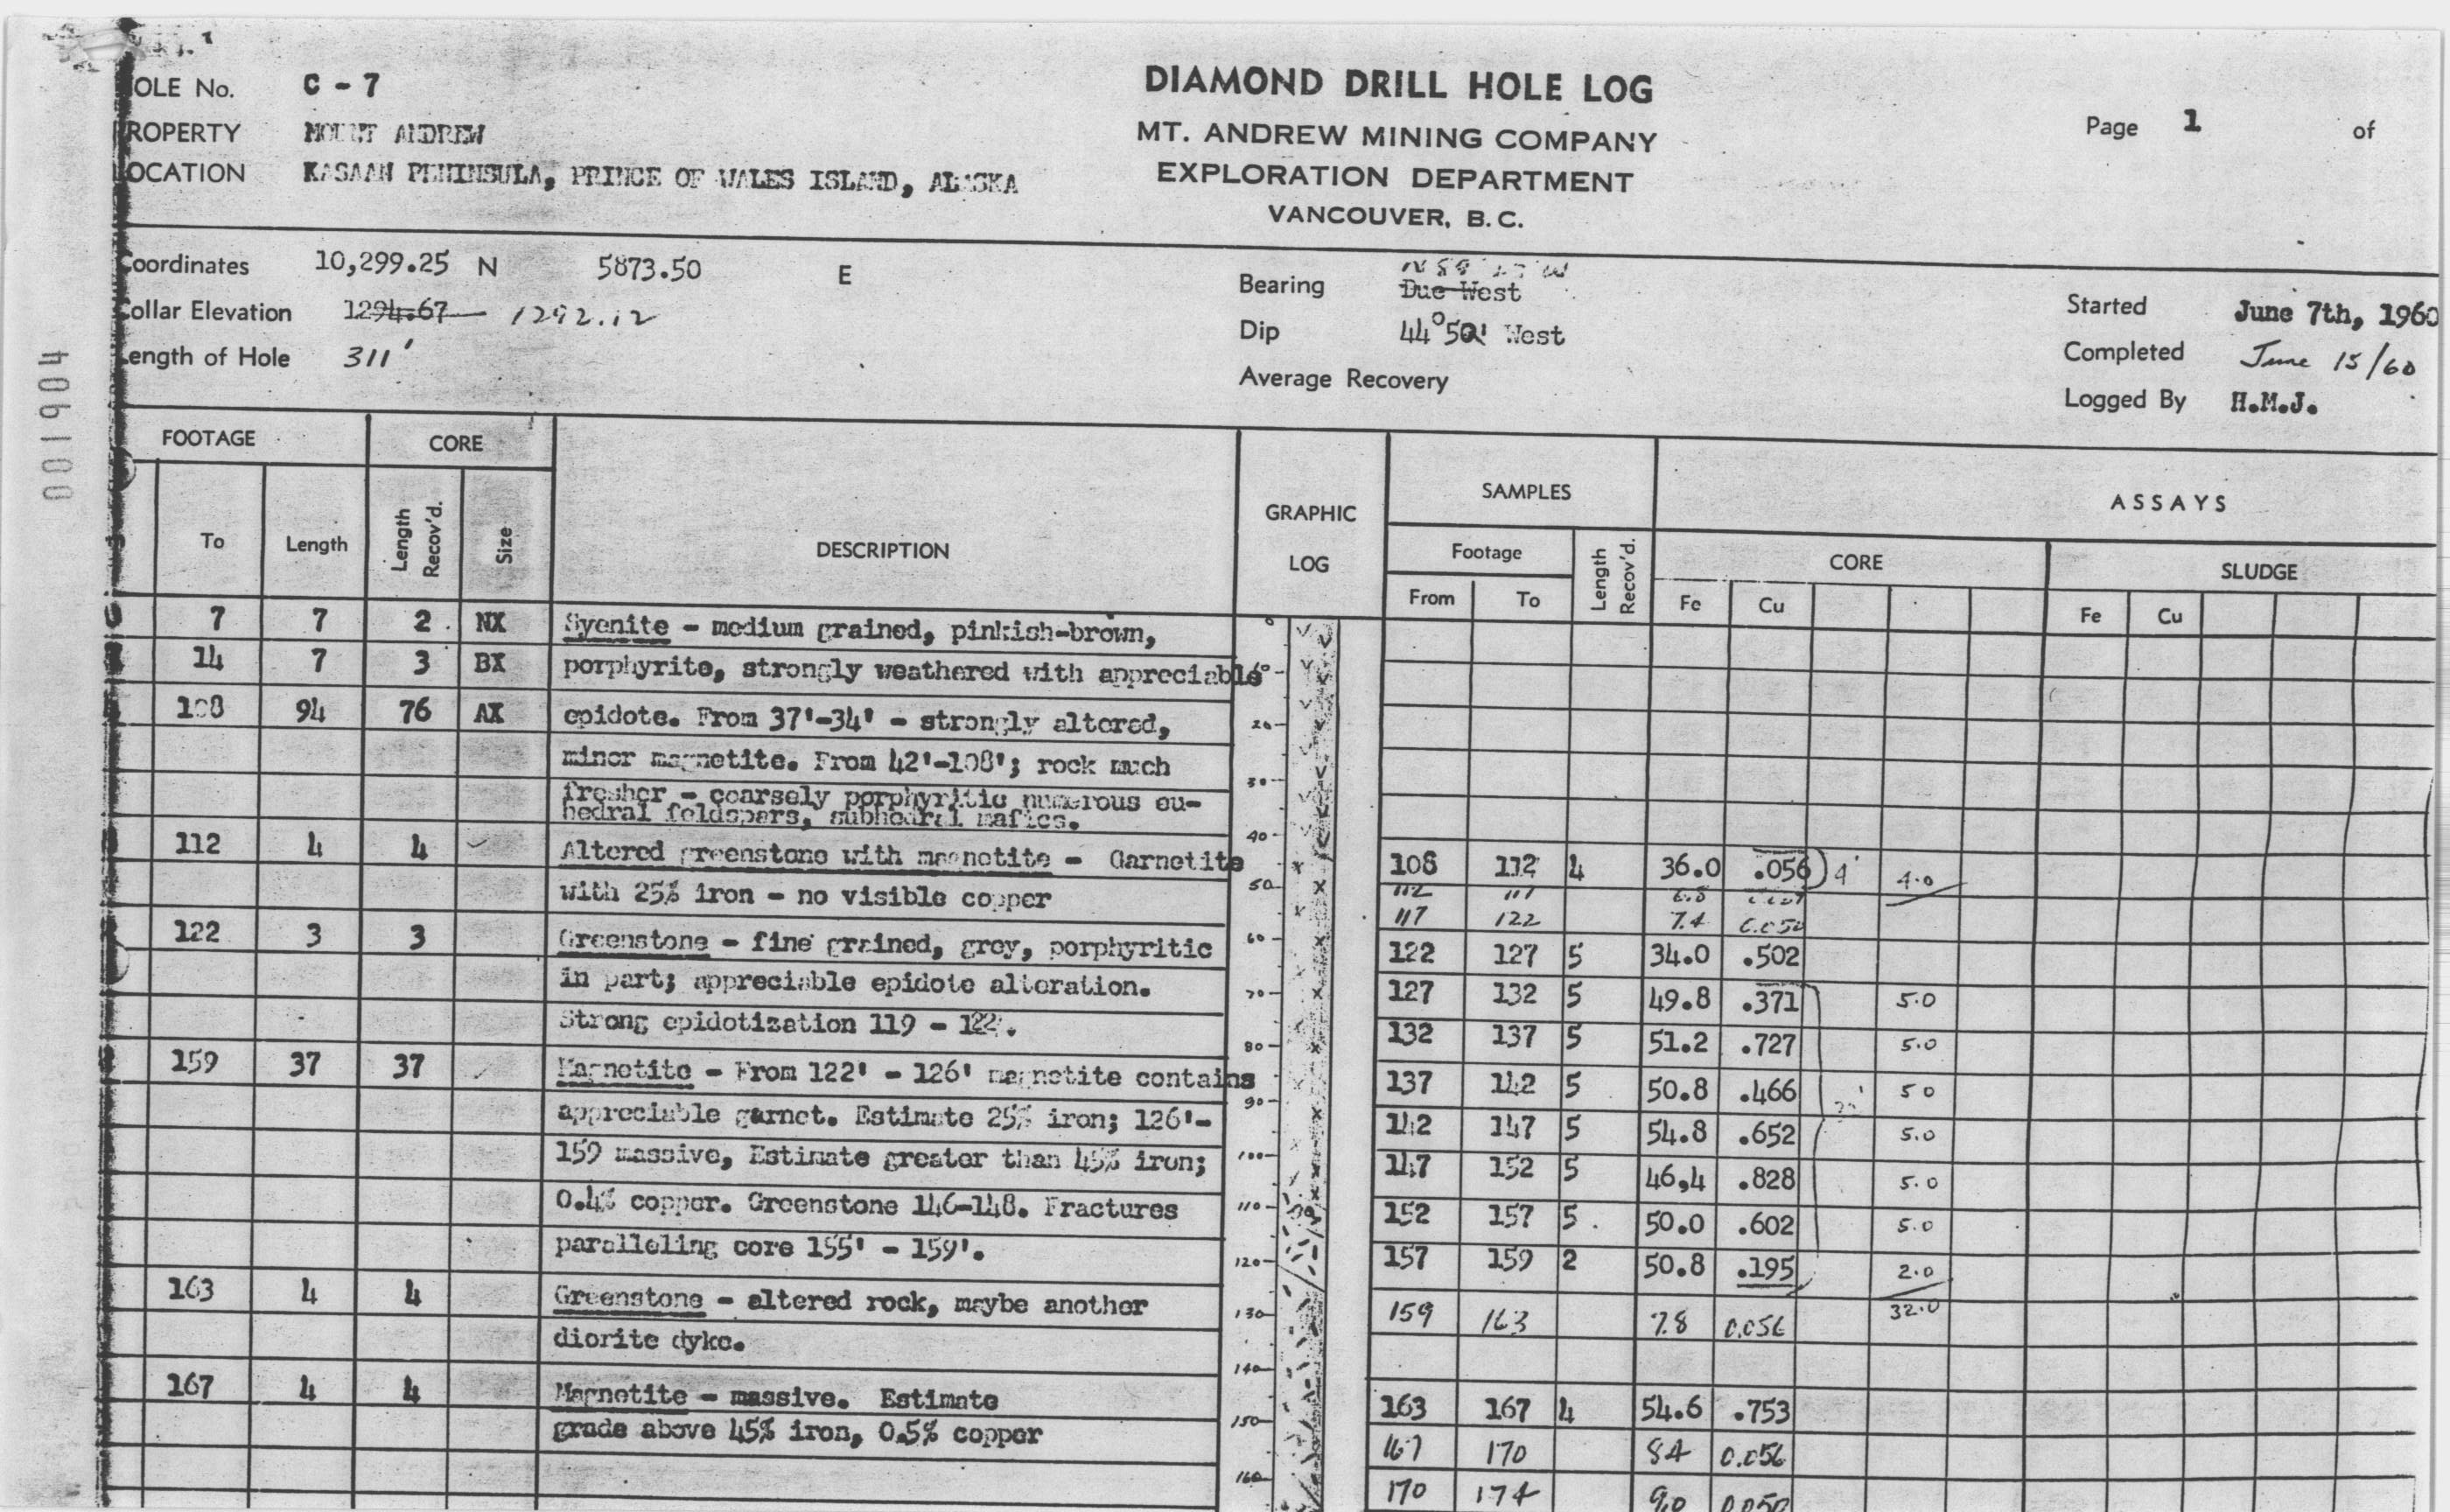 OLE No. C - 7
ROPERTY MOUNT ANDREW
OCATION KASAAN PENINSULA, PRINCE OF WALES ISLAND, ALASKA
DIAMOND DRILL HOLE LOG
MT. ANDREW MINING COMPANY
EXPLORATION DEPARTMENT
VANCOUVER, B.C.
Page 1 of
Coordinates 10,299.25 N 5873.50 E
Collar Elevation 1294.67 1292.12
Length of Hole 311'
Bearing Due West
Dip 44°50' West
Average Recovery
Started June 7th, 1960
Completed June 15/60
Logged By H.M.J.
001904
FOOTAGE CORE DESCRIPTION GRAPHIC LOG SAMPLES ASSAYS
To Length Length Recov'd. Size Footage Length Recov'd. CORE SLUDGE
From To Fe Cu Fe Cu
7 7 2 NX Syenite - medium grained, pinkish-brown, 0
14 7 3 BX porphyrite, strongly weathered with appreciable 10
108 94 76 AX epidote. From 37'-34' - strongly altered, 20
minor magnetite. From 42'-108'; rock much 30
fresher - coarsely porphyritic numerous eu-
hedral feldspars, subhedral mafics. 40
112 4 4 Altered greenstone with magnetite - Garnetite 108 112 4 36.0 .056 4' 4.0
with 25% iron - no visible copper 50 112 117 6.8
117 122 7.4 0.050
122 3 3 Greenstone - fine grained, grey, porphyritic 60 122 127 5 34.0 .502
in part; appreciable epidote alteration. 70 127 132 5 49.8 .371 5.0
Strong epidotization 119 - 122. 80 132 137 5 51.2 .727 5.0
159 37 37 Magnetite - From 122' - 126' magnetite contains 137 142 5 50.8 .466 5 0
appreciable garnet. Estimate 25% iron; 126'- 90 142 147 5 54.8 .652 5.0
159 massive, Estimate greater than 45% iron; 100 147 152 5 46,4 .828 5.0
0.4% copper. Greenstone 146-148. Fractures 110 152 157 5 50.0 .602 5.0
paralleling core 155' - 159'. 120 157 159 2 50.8 .195 2.0
163 4 4 Greenstone - altered rock, maybe another 130 159 163 7.8 0.056 32.0
diorite dyke. 140
167 4 4 Magnetite - massive. Estimate 163 167 4 54.6 .753
grade above 45% iron, 0.5% copper 150 167 170 8.4 0.056
160 170 174 9.0 0.050